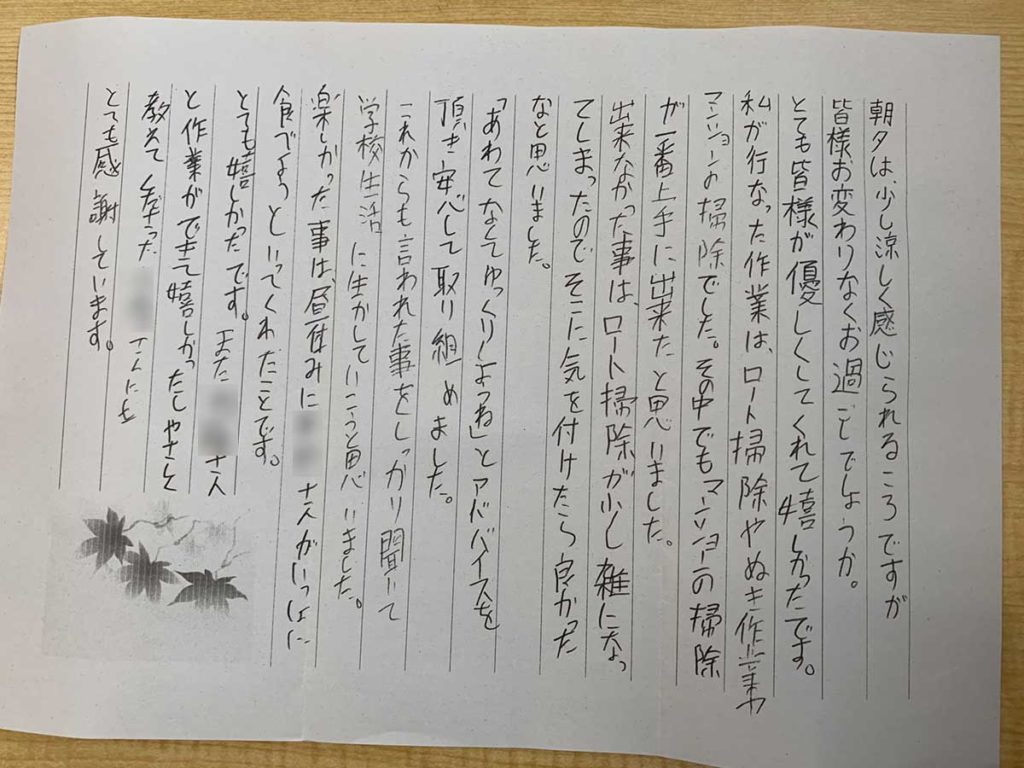 朝夕は少し涼しく感じられるころですが
皆様お変わりなくお過ごしでしょうか。
とても皆様が優しくしてくれて嬉しかったです。
私が行なった作業は、ロート掃除やぬき作業や
マンションの掃除でした。その中でもマンションの掃除
が一番上手に出来たと思いました。
出来なかった事は、ロート掃除が少し雑になっ
てしまったのでそこに気を付けたら良かった
なと思いました。
「あわてなくてゆっくりしようね」とアドバイスを
頂き安心して取り組めました。
これからも言われた事をしっかり聞いて
学校生活に生かしていこうと思いました。
楽しかった事は昼休みに さんがいっしょに
食べようっといってくれたことです。
とても嬉しかったです。また さん
と作業ができて嬉しかったしやさしく
教えて下さった さんにも
とても感謝しています。